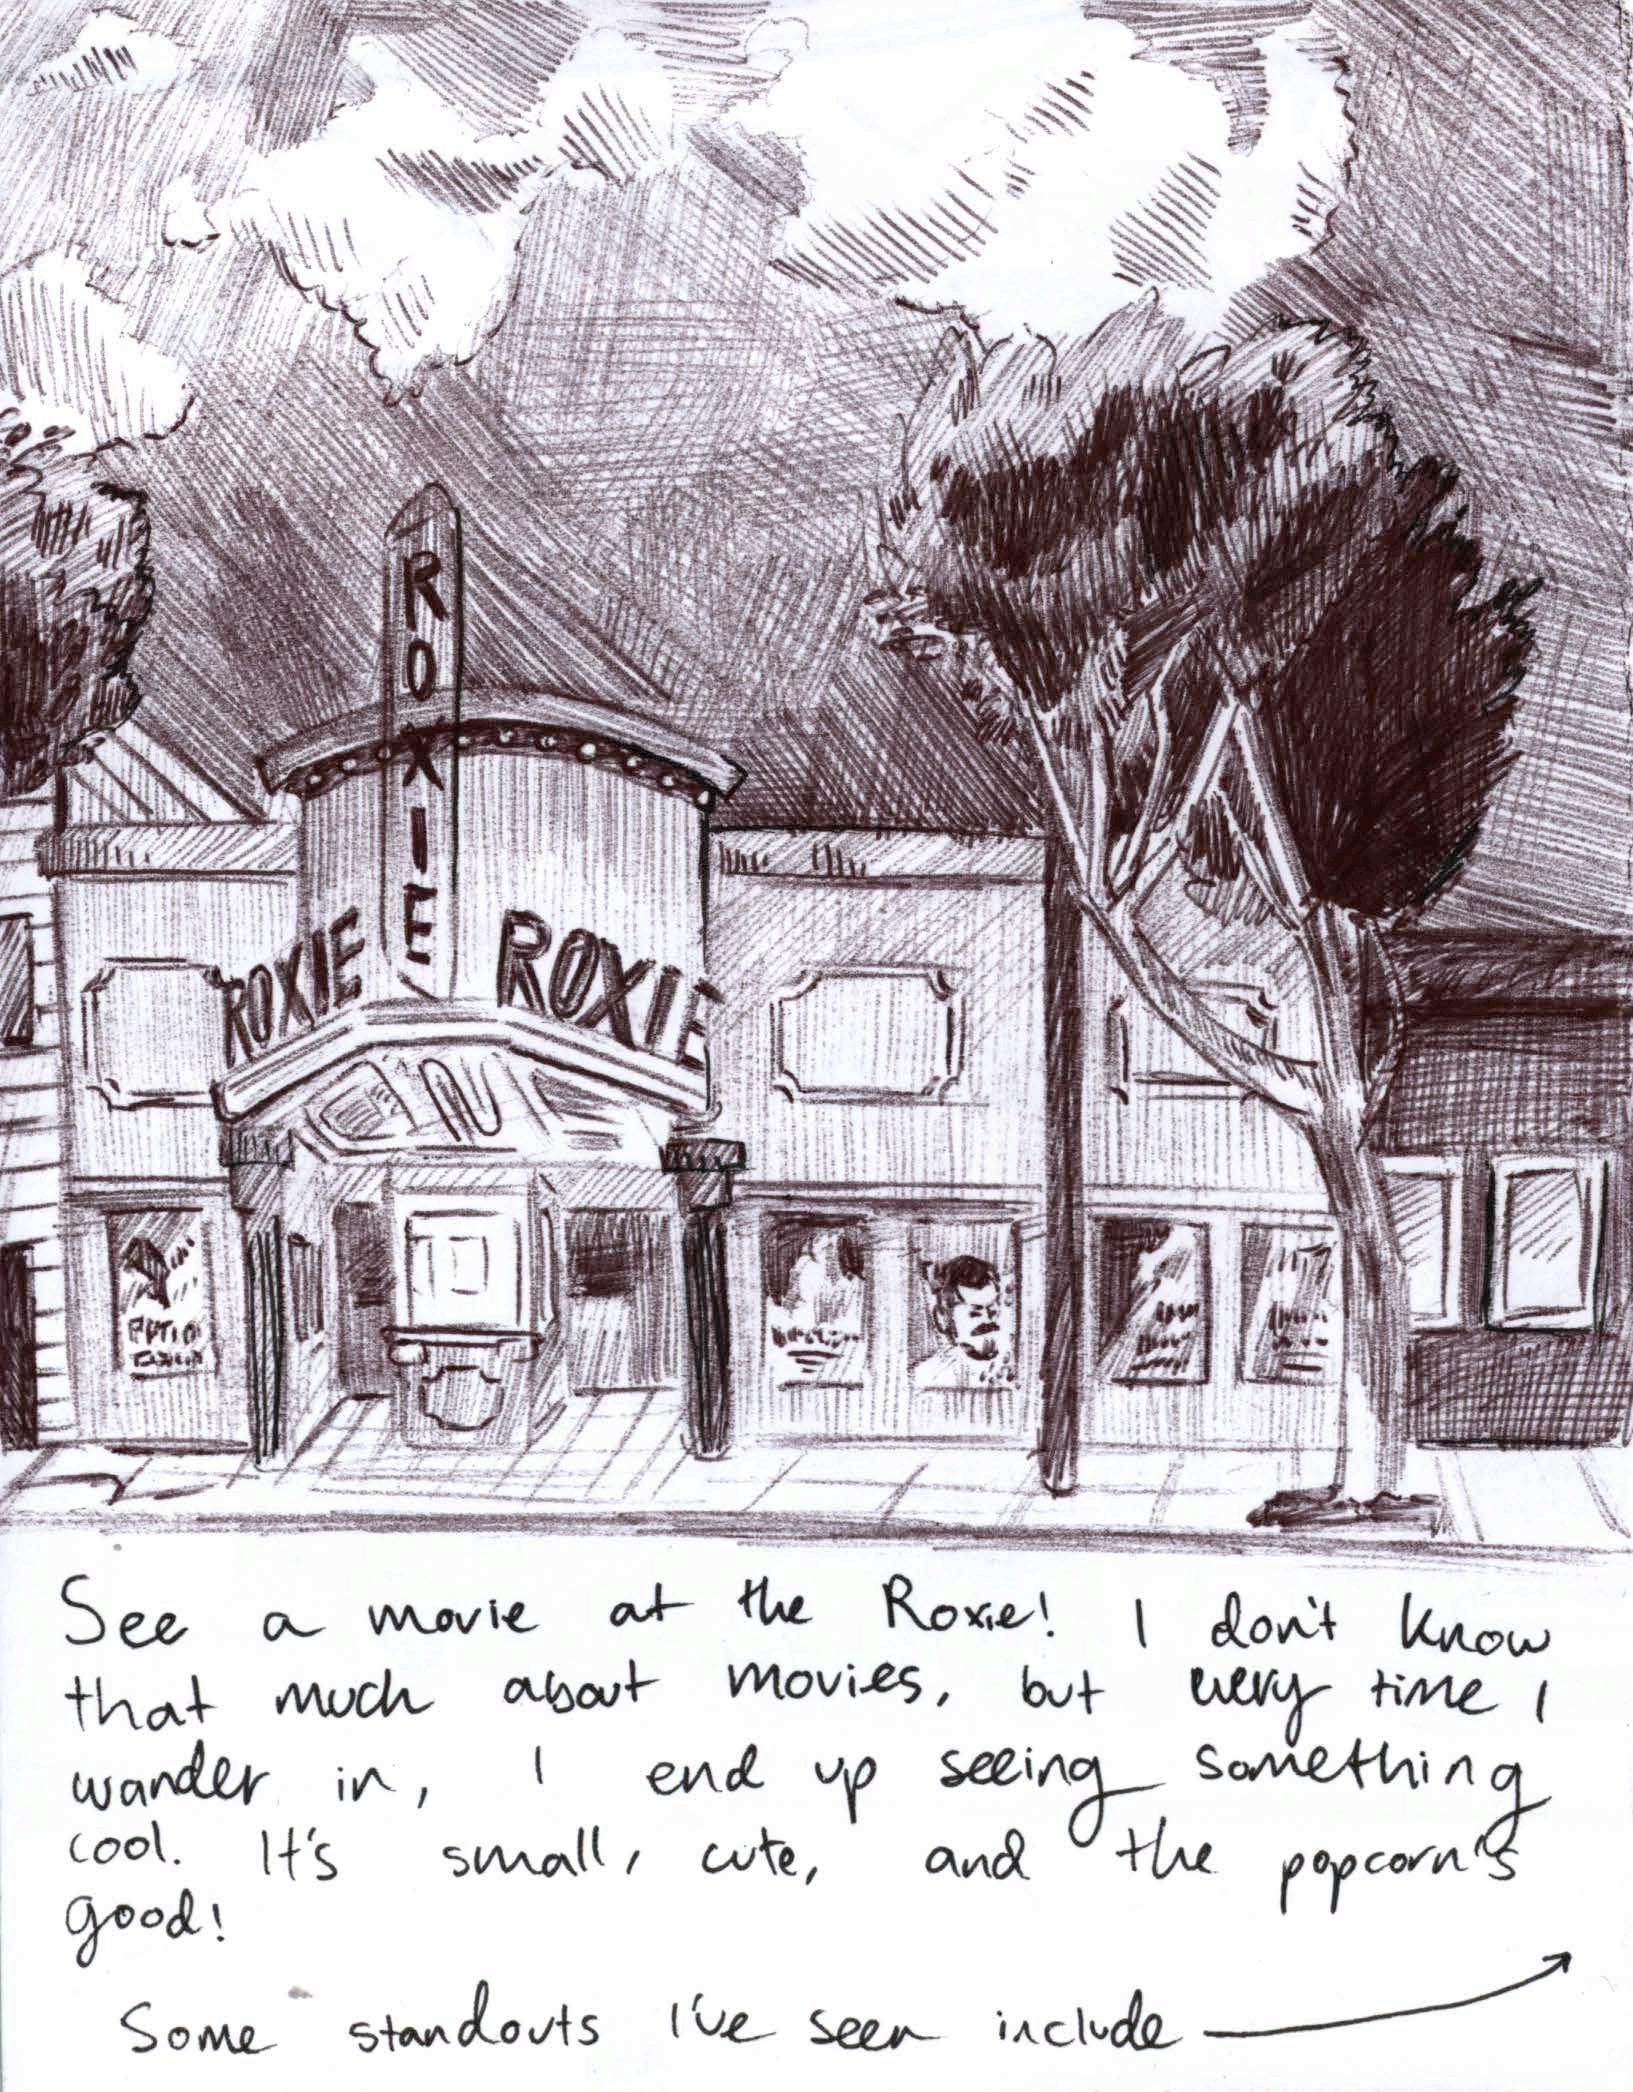 ROXIE
ROXIE
ROXIE
See a movie at the Roxie! I don't know
that much about movies, but every time I
wander in, I end up seeing something
cool. It's small, cute, and the popcorn's
good!
Some standouts I've seen include